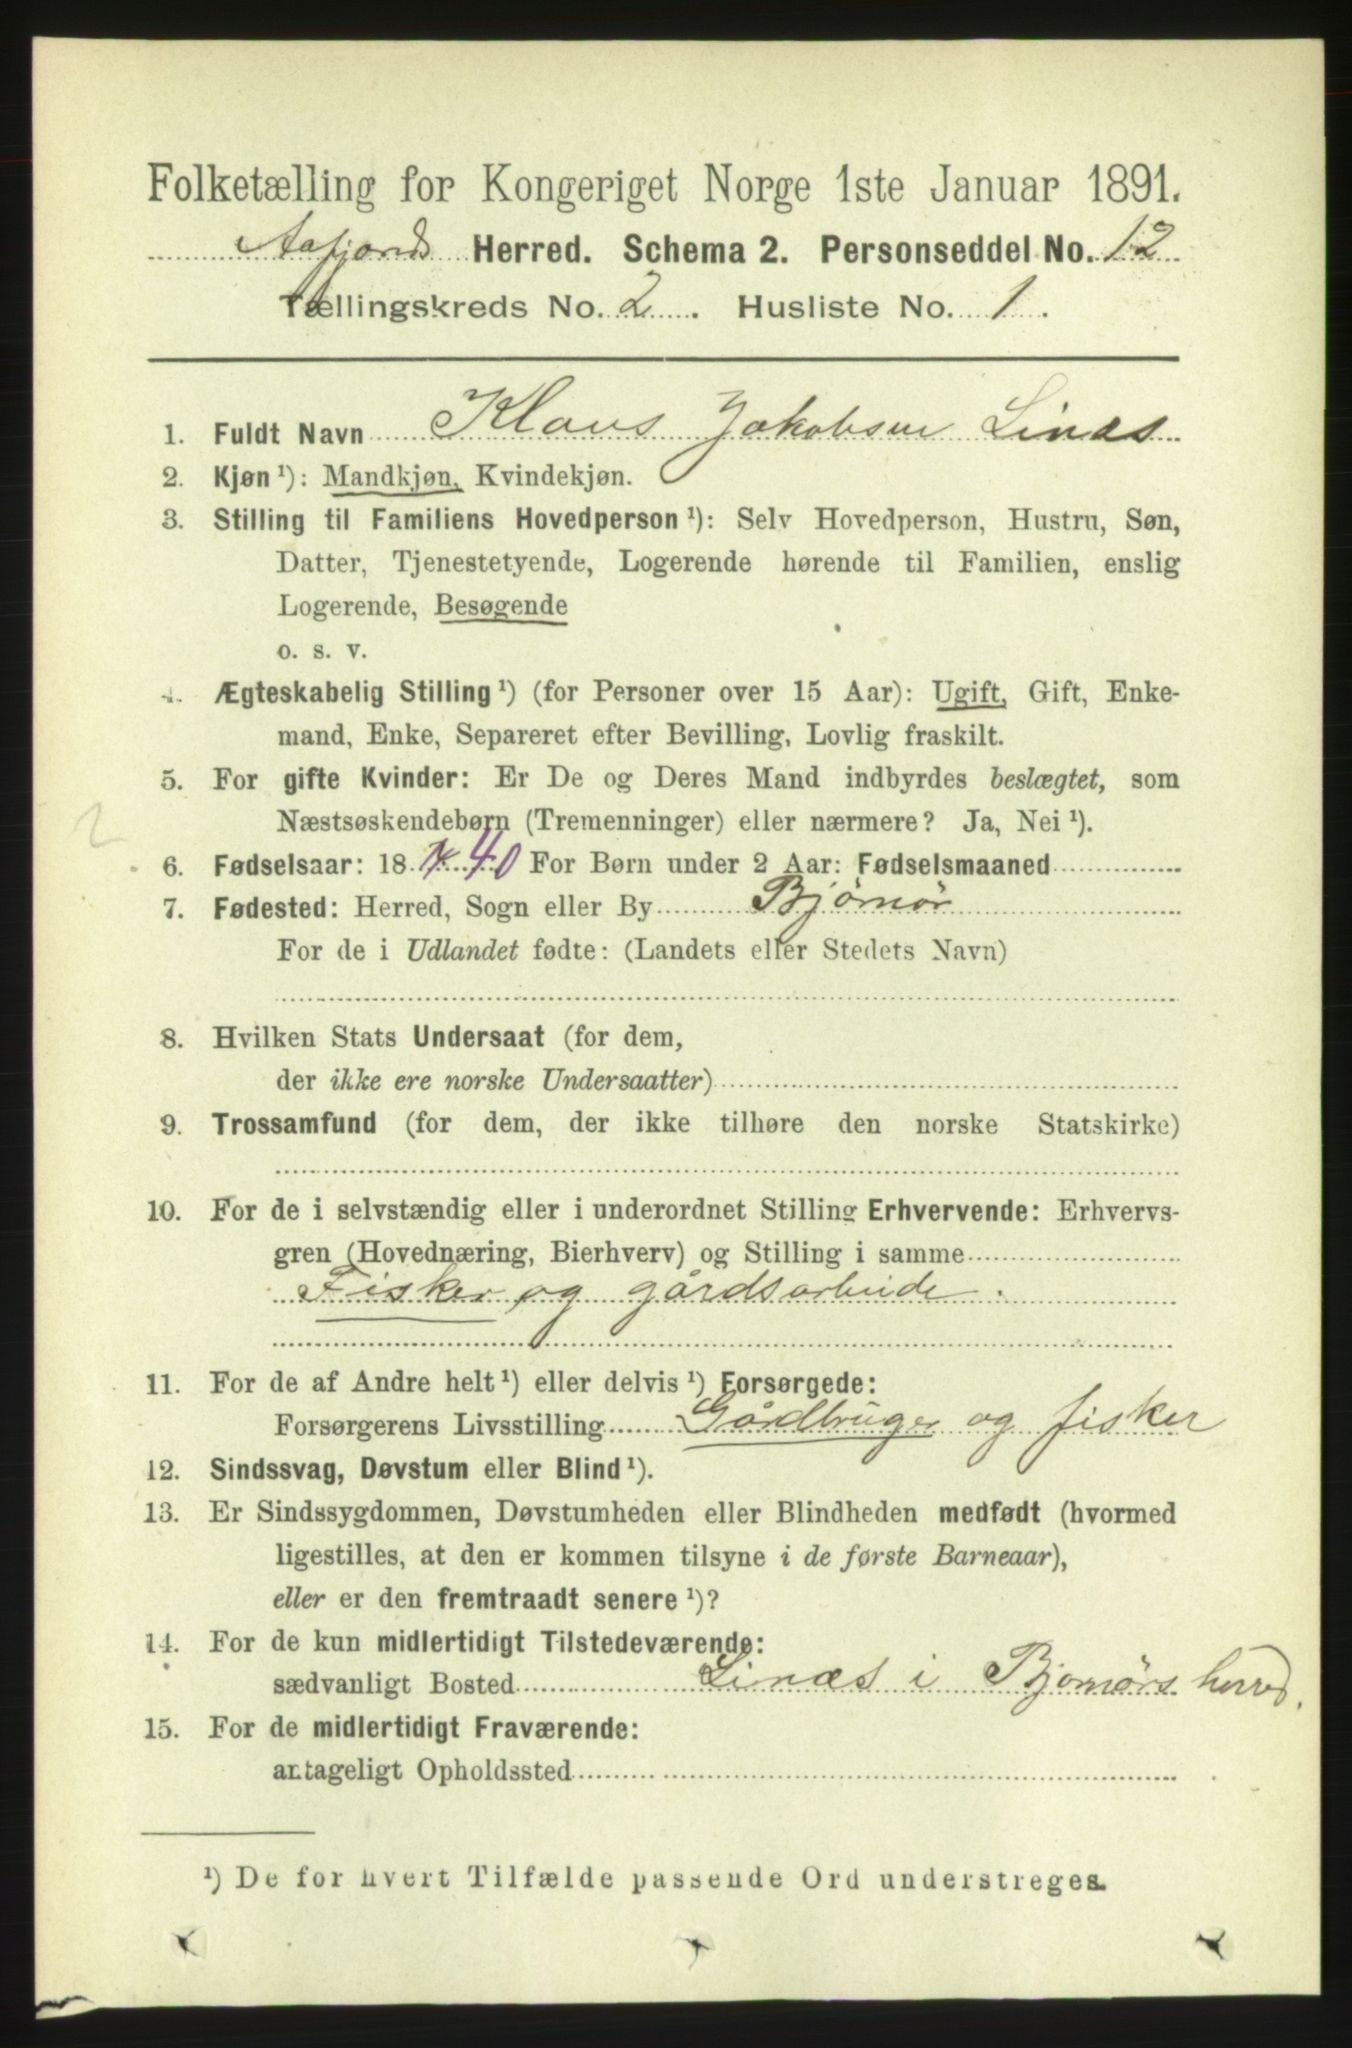 Folketælling for Kongeriget Norge 1ste Januar 1891.
Aafjords Herred. Schema 2. Personseddel No. 12
Tællingskreds No. 2. Husliste No. 1.
1. Fuldt Navn Klaus Jakobsen Linæs
2. Kjøn ¹): Mandkjøn, Kvindekjøn.
3. Stilling til Familiens Hovedperson ¹): Selv Hovedperson, Hustru, Søn,
Datter, Tjenestetyende, Logerende hørende til Familien, enslig
Logerende, Besøgende
o. s. v.
4. Ægteskabelig Stilling ¹) (for Personer over 15 Aar): Ugift, Gift, Enke-
mand, Enke, Separeret efter Bevilling, Lovlig fraskilt.
5. For gifte Kvinder: Er De og Deres Mand indbyrdes beslægtet, som
Næstsøskendebørn (Tremenninger) eller nærmere? Ja, Nei ¹).
2
6. Fødselsaar: 18 40 For Børn under 2 Aar: Fødselsmaaned
7. Fødested: Herred, Sogn eller By Bjørnør
For de i Udlandet fødte: (Landets eller Stedets Navn)
8. Hvilken Stats Undersaat (for dem,
der ikke ere norske Undersaatter)
9. Trossamfund (for dem, der ikke tilhøre den norske Statskirke)
10. For de i selvstændig eller i underordnet Stilling Erhvervende: Erhvervs-
gren (Hovednæring, Bierhverv) og Stilling i samme
Fisker og gårdsarbeide.
11. For de af Andre helt ¹) eller delvis ¹) Forsørgede:
Forsørgerens Livsstilling Gårdbruger og fisker
12. Sindssvag, Døvstum eller Blind ¹).
13. Er Sindssygdommen, Døvstumheden eller Blindheden medfødt (hvormed
ligestilles, at den er kommen tilsyne i de første Barneaar),
eller er den fremtraadt senere ¹)?
14. For de kun midlertidigt Tilstedeværende:
sædvanligt Bosted Linæs i Bjørnørs herred.
15. For de midlertidigt Fraværende:
antageligt Opholdssted
¹) De for hvert Tilfælde passende Ord understreges.